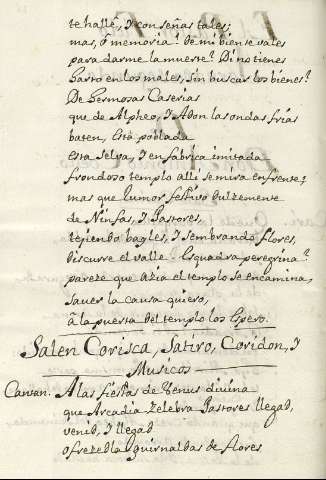 te hallé, I con señas tales;
mas, ó memoria! de mi bien te vales
para darme la muerte? Di no tienes
harto en los males, sin buscar los bienes?
De hermosas Caserias
que de Alpheo, I Adon las ondas frias
baten, Está poblada
esta selva, I en fabrica imitada
frondoso templo alli se mira enfrente;
mas que rumor festivo dulzemente
de Ninfas, I Pastores,
tejiendo bayles, I sembrando flores,
discurre el valle. Esquadra peregrina?
pareze que azia el templo se encamina,
saver la causa quiero,
â la puerta del templo los Espero.
Salen Corisca, Satiro, Coridon, I
Musicos
Cantan. A las fiestas de Venus divina
que Arcadia zelebra Pastores llegad,
venid, I llegad
ofrezedla guirnaldas de flores